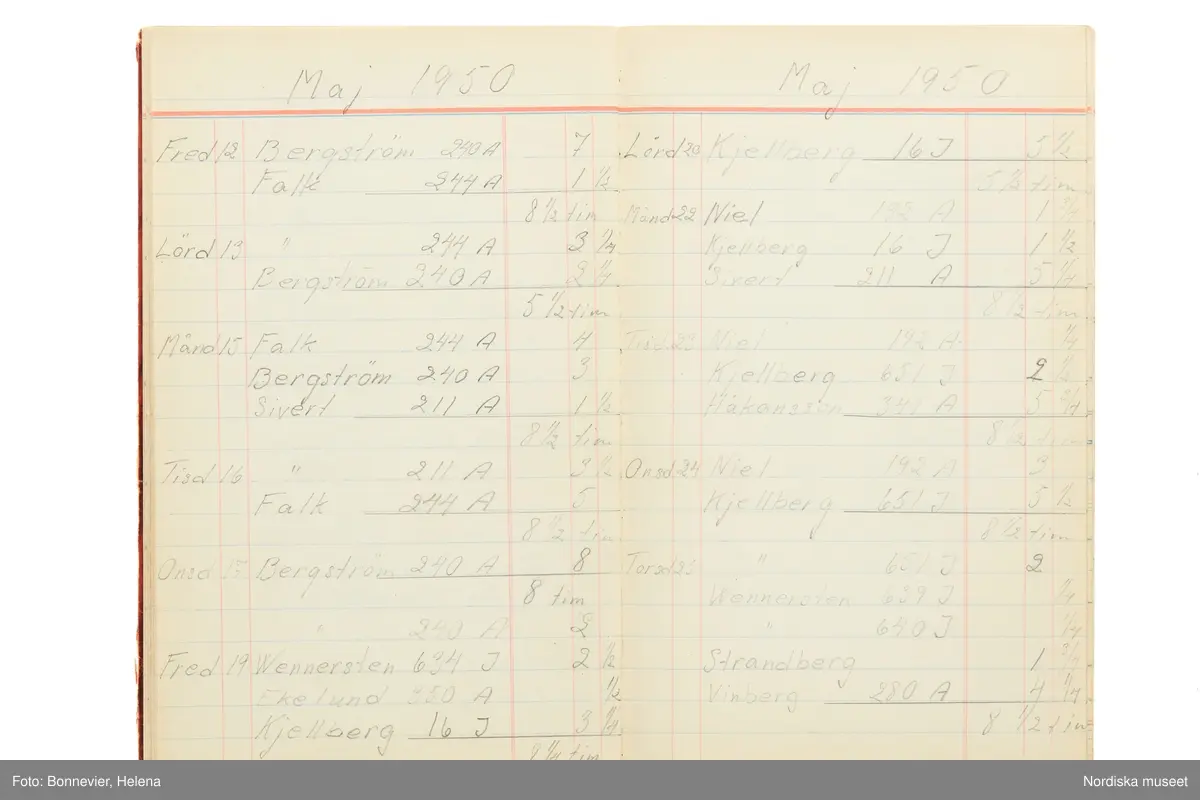 Maj 1950
Fred 12 Bergström 240 A 7
Falk 244 A 1 1/2
8 1/2 tim
Lörd 13 " 244 A 3 1/4
Bergström 240 A 2 1/4
5 1/2 tim
Månd 15 Falk 244 A 4
Bergström 240 A 3
Sivert 211 A 1 1/2
8 1/2 tim
Tisd 16 " 211 A 3 1/2
Falk 244 A 5
8 1/2 tim
Onsd 17 Bergström 240 A 8
8 tim
" 240 A 2
Fred 19 Wennersten 634 J 2 1/2
Ekelund 350 A 1/2
Kjellberg 16 J 3 1/4
8 1/4 tim
Maj 1950
Lörd 20 Kjellberg 16 J 5 1/2
5 1/2 tim
Månd 22 Niel 192 A 1 3/4
Kjellberg 16 J 1 1/2
Sivert 211 A 5 1/4
8 1/2 tim
Tisd 23 Niel 192 A 1/4
Kjellberg 651 J 2 1/2
Håkansson 341 A 5 3/4
8 1/2 tim
Onsd 24 Niel 192 A 3
Kjellberg 651 J 5 1/2
8 1/2 tim
Torsd 25 " 651 J 2
Wennersten 639 J 1/4
" 640 J 1/4
Strandberg 1 3/4
Vinberg 280 A 4 1/4
8 1/2 tim
Foto: Bonnevier, Helena
Nordiska museet